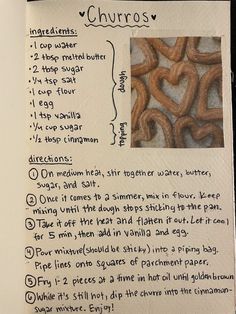 Churros
ingredients:
• 1 cup water
• 2 tbsp melted butter
• 2 tbsp sugar
• 1/4 tsp salt
• 1 cup flour
• 1 egg
• 1 tsp vanilla
dough
• 1/4 cup sugar
• 1/2 tbsp cinnamon
topping
directions:
① On medium heat, stir together water, butter,
sugar, and salt.
② Once it comes to a simmer, mix in flour. Keep
mixing until the dough stops sticking to the pan.
③ Take it off the heat and flatten it out. Let it cool
for 5 min, then add in vanilla and egg.
④ Pour mixture (should be sticky) into a piping bag.
Pipe lines onto squares of parchment paper.
⑤ Fry 1-2 pieces at a time in hot oil until golden brown
⑥ While it's still hot, dip the churro into the cinnamon-
sugar mixture. Enjoy!